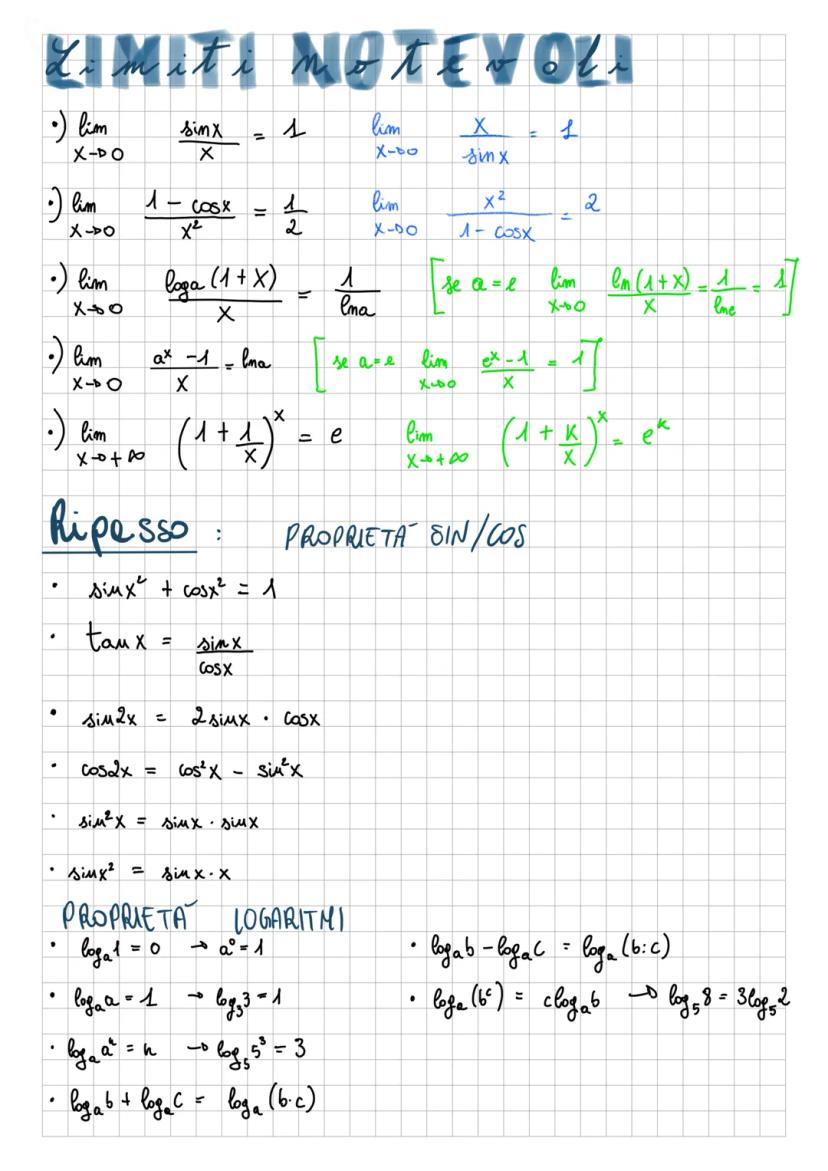 Limiti NOTEVOLI
•) lim x→0 sinx/x = 1 lim x→0 x/sinx = 1
•) lim x→0 (1 - cosx)/x² = 1/2 lim x→0 x²/(1 - cosx) = 2
•) lim x→0 loga(1+x)/x = 1/lna [se a=e lim x→0 ln(1+x)/x = 1/lne = 1]
•) lim x→0 (aˣ - 1)/x = lna [se a=e lim x→0 (eˣ - 1)/x = 1]
•) lim x→+∞ (1 + 1/x)ˣ = e lim x→+∞ (1 + k/x)ˣ = eᵏ
Ripasso : PROPRIETA' SIN/COS
• sinx² + cosx² = 1
• tanx = sinx/cosx
• sin2x = 2sinx · cosx
• cos2x = cos²x - sin²x
• sin²x = sinx · sinx
• sinx² = sinx·x
PROPRIETA' LOGARITMI
• logₐ1 = 0 → a⁰ = 1
• logₐa = 1 → log₃3 = 1
• logₐaⁿ = n → log₅5³ = 3
• logₐb + logₐc = logₐ(b·c)
• logₐb - logₐc = logₐ(b:c)
• logₐ(bᶜ) = clogₐb → log₅8 = 3log₅2